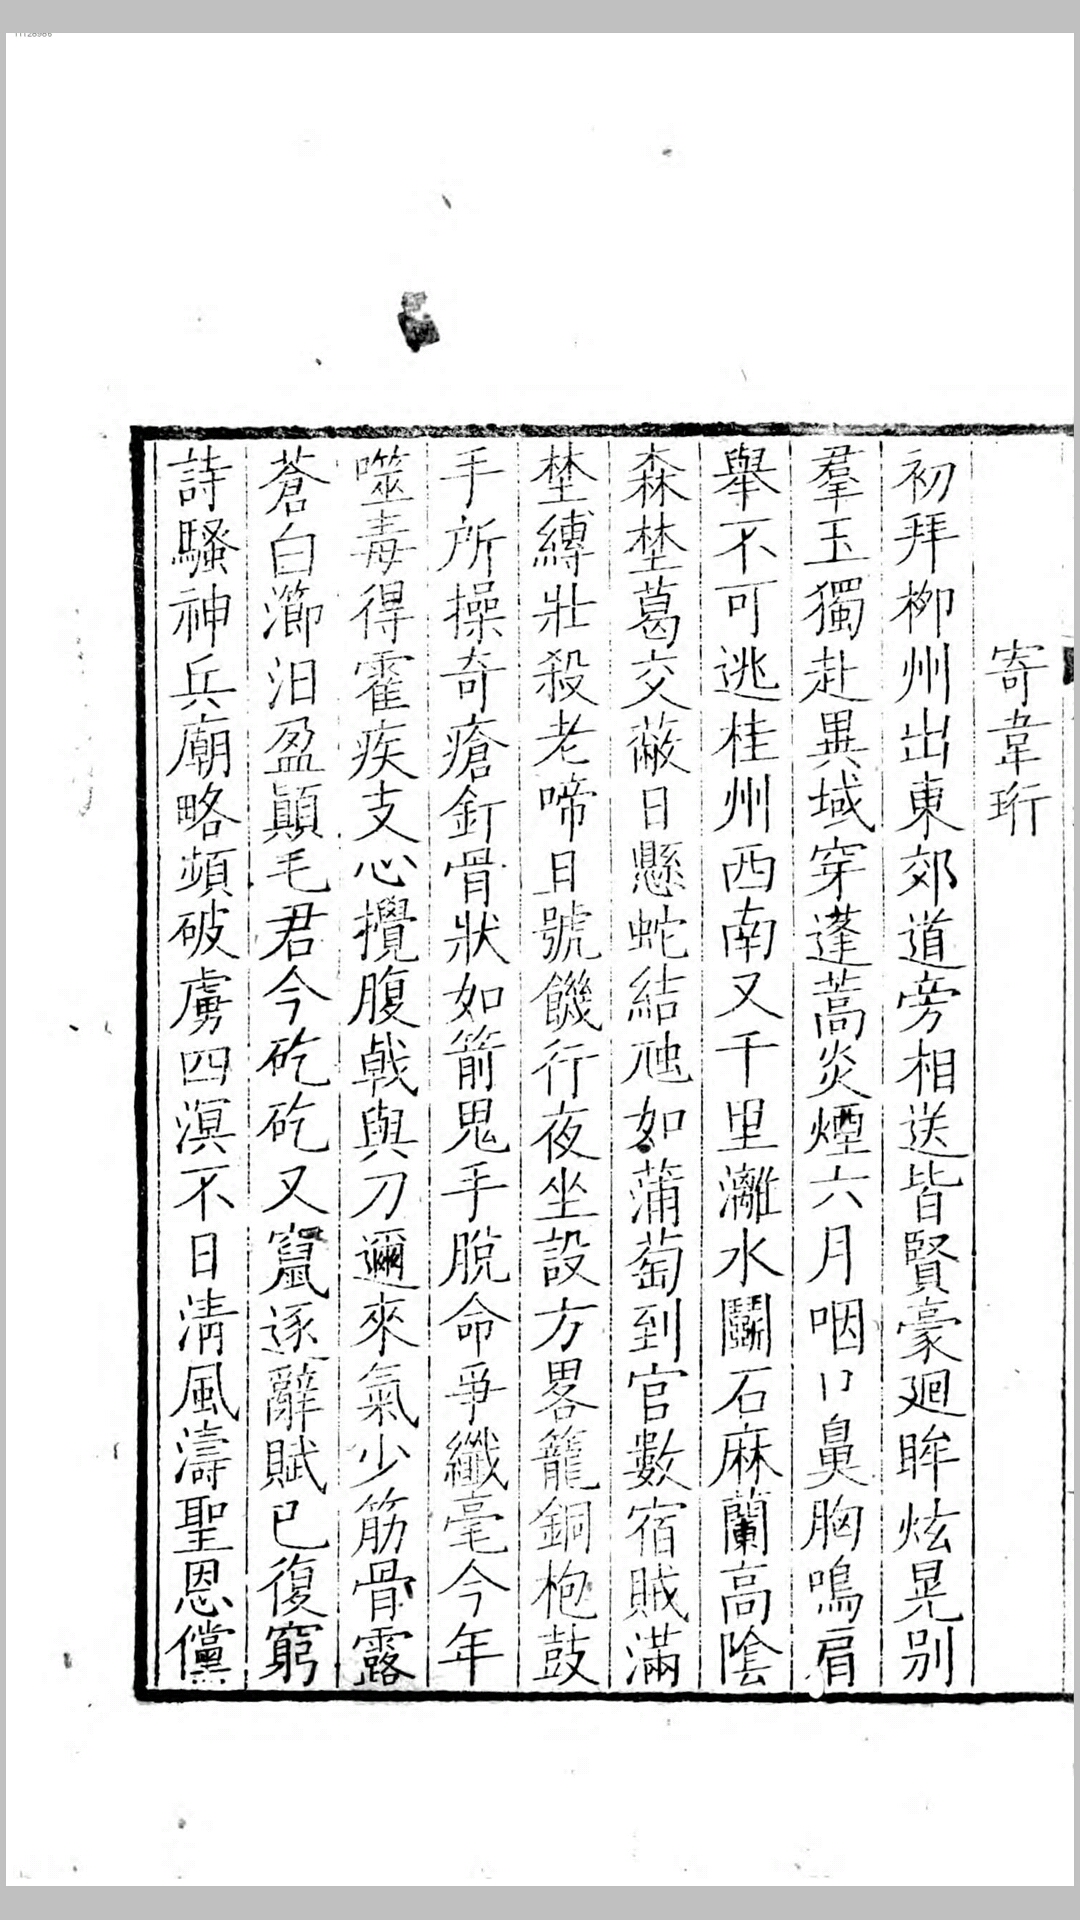 寄韋珩
初拜栁州出東郊道旁相送皆賢豪廻眸炫晃别
羣玉獨赴異域穿蓬蒿炎煙六月咽口鼻胸鳴肩
舉不可逃桂州西南又千里灕水鬭石麻蘭高陰
森埜葛交蔽日懸蛇結虺如蒲萄到官數宿賊滿
埜縛壯殺老啼且號饑行夜坐設方畧籠銅枹鼓
手所操奇瘡釘骨狀如箭鬼手脫命爭纖毫今年
噬毒得霍疾支心攪腹戟與刀邇來氣少筋骨露
蒼白瀄汩盈顚毛君今矻矻又竄逐辭賦已復窮
詩騷神兵廟略頻破虜四溟不日淸風濤聖恩儻